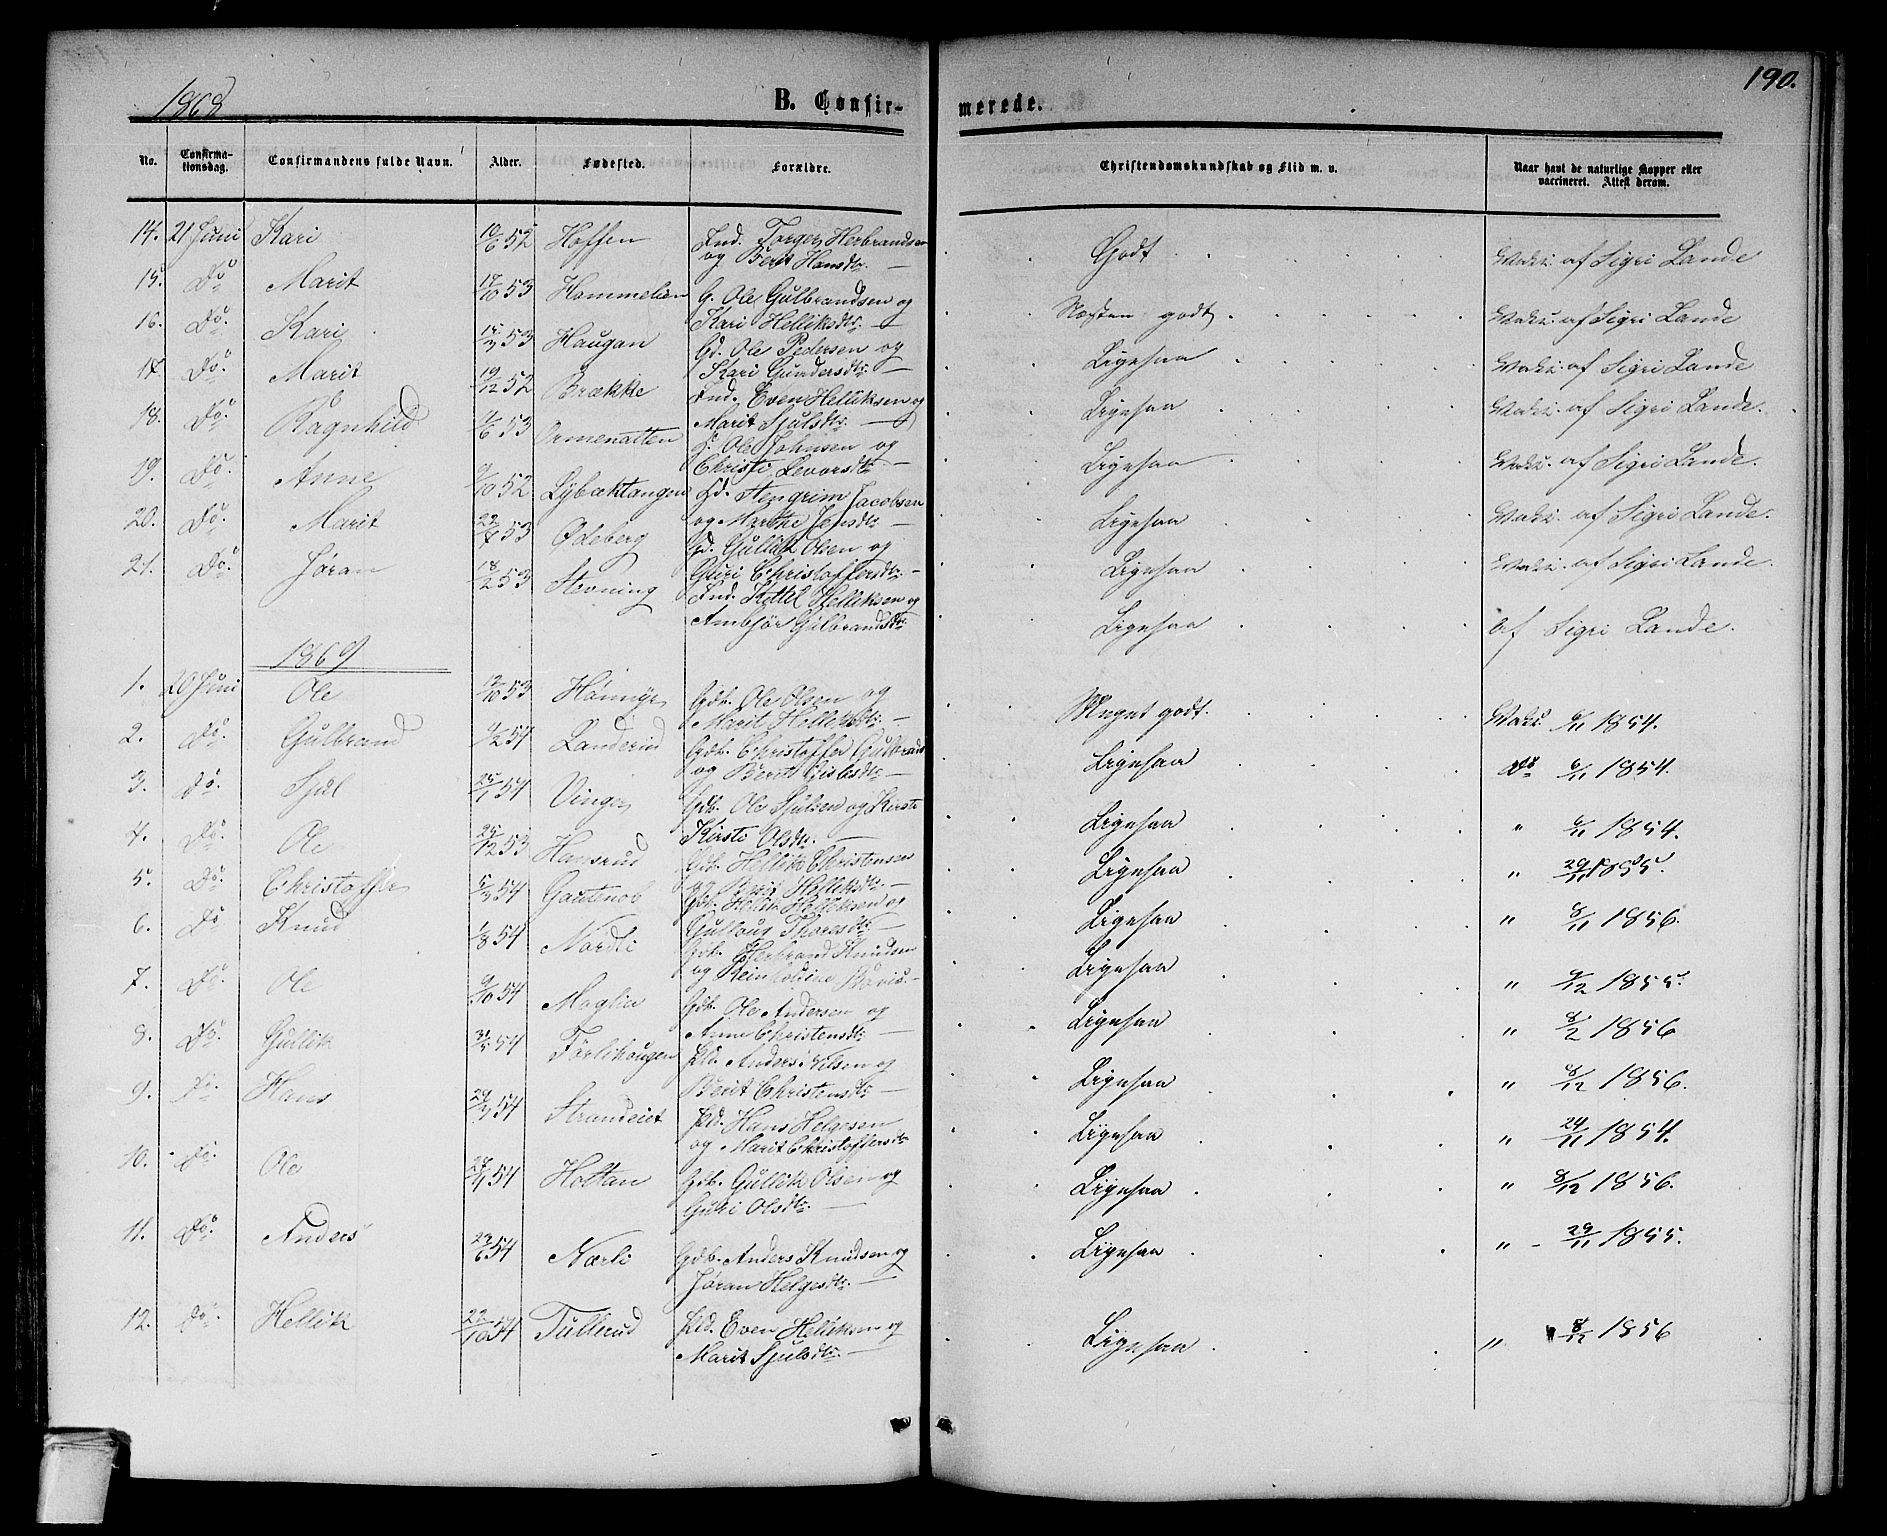 1868
B. Confir-
merede.
190.
No.
Confirma-
tionsdag.
Confirmandens fulde Navn.
Alder.
Fødested.
Forældre.
Christendomskundskab og Flid m. v.
Naar havt de naturlige Kopper eller
vaccineret. Attest derom.
14. 21 Juni Kari 10/6 52 Hoffen Ind. Torger Herbrandsen
og Berit Hansdtr. — Godt Vakc. af Sigri Lande
15. Do Marit 17/10 53 Hammelien G. Ole Gulbrandsen og
Kari Helliksdtr. — Næsten godt Vakc. af Sigri Lande
16. Do Kari 53 Haugan Gd. Ole Pedersen og
Kari Gundersdtr. — Ligesaa Vakc. af Sigri Lande
17 Do Marit 19/12 52 Brække Ind. Even Helliksen og
Marit Sjulsdtr. — Ligesaa Vakc. af Sigri Lande.
18. Do Ragnhild 53 Ormenatten Ole Johnsen og
Christi Levorsdtr. — Ligesaa Vakc. af Sigri Lande.
19. Do Anne 9/10 52 Lybæktangen Stengrim Jacobsen
og Marthe Jensdtr. — Ligesaa Vakc. af Sigri Lande.
20. Do Marit 53 Ødeberg Gd. Gullik Olsen og
Guri Christoffersdtr. — Ligesaa Vakc. af Sigri Lande.
21. Do Jøran 18/2 53 Stevning Ind. Kettel Helliksen og
Ambjør Gulbrandsdtr. Ligesaa af Sigri Lande.
1869
1. 20 Juni Ole 53 Gdb. Ole Olsen og
Marit Helliksdtr. — Meget godt. Vakc. 6/11 1854.
2. Do Gulbrand 54 Landerud Gdb. Christoffer Gulbrands
og Berit Gislesdtr. — Ligesaa Do 6/11 1854.
3. Do Sjul 25/1 54 Vinger Gdb. Ole Sjulsen og Kirsti
Kirsti Olsdtr. — Ligesaa " 6/11 1854.
4. Do Ole 25/12 53 Hansrud Gdb. Hellik Christensen
og Berit Helliksdtr. — Ligesaa " 29/11 1855.
5. Do Christoffer 54 Gdb. Hellik Helliksen og
Thoresdtr. — Ligesaa " 8/11 1856.
6. Do Knud 1/8 54 Nordli Gdb. Herbrand Knudsen
og — Ligesaa " 9/12 1855.
7. Do Ole 9/10 54 Moglia Gdb. Ole Andersen og
Anne Christensdtr. — Ligesaa " 8/2 1856
8. Do Gullik 31/5 54 Førlihaugen Pld. Anders Nilsen og
Berit Christensdtr. — Ligesaa " 8/12 1856.
9. Do Hans 54 Strandeiet Pld. Hans Helgesen
og Marit Christoffersdtr Ligesaa " 24/11 1854.
10. Do Ole 54 Holtan Gdb. Gullik Olsen og
Guri Olsdtr. — Ligesaa " 8/12 1856.
11. Do Anders 23/6 54 Nørli Gdb. Anders Knudsen og
Jøran Helgesdtr. — Ligesaa " - 29/11 1855.
12. Do Hellik 22/10 54 Tullerud Pld. Even Helliksen og
Marit Sjulsdtr. — Ligesaa " 8/12 1856